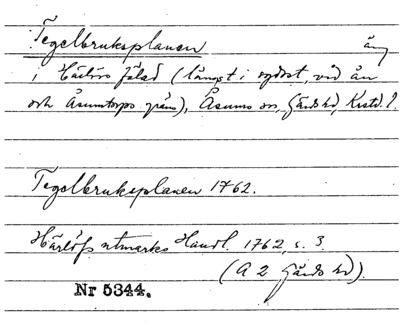 Tegelbruksplanen äng
i Härlövs fälad (längst i sydost, vid ån
och Åsumtorps gräns), Åsums sn, Gärds hd, Krstd. l.
Tegelbruksplanen 1762.
Härlöfs utmarks Handl. 1762, s. 3.
(A 2 Gärds hd).
Nr 5344.